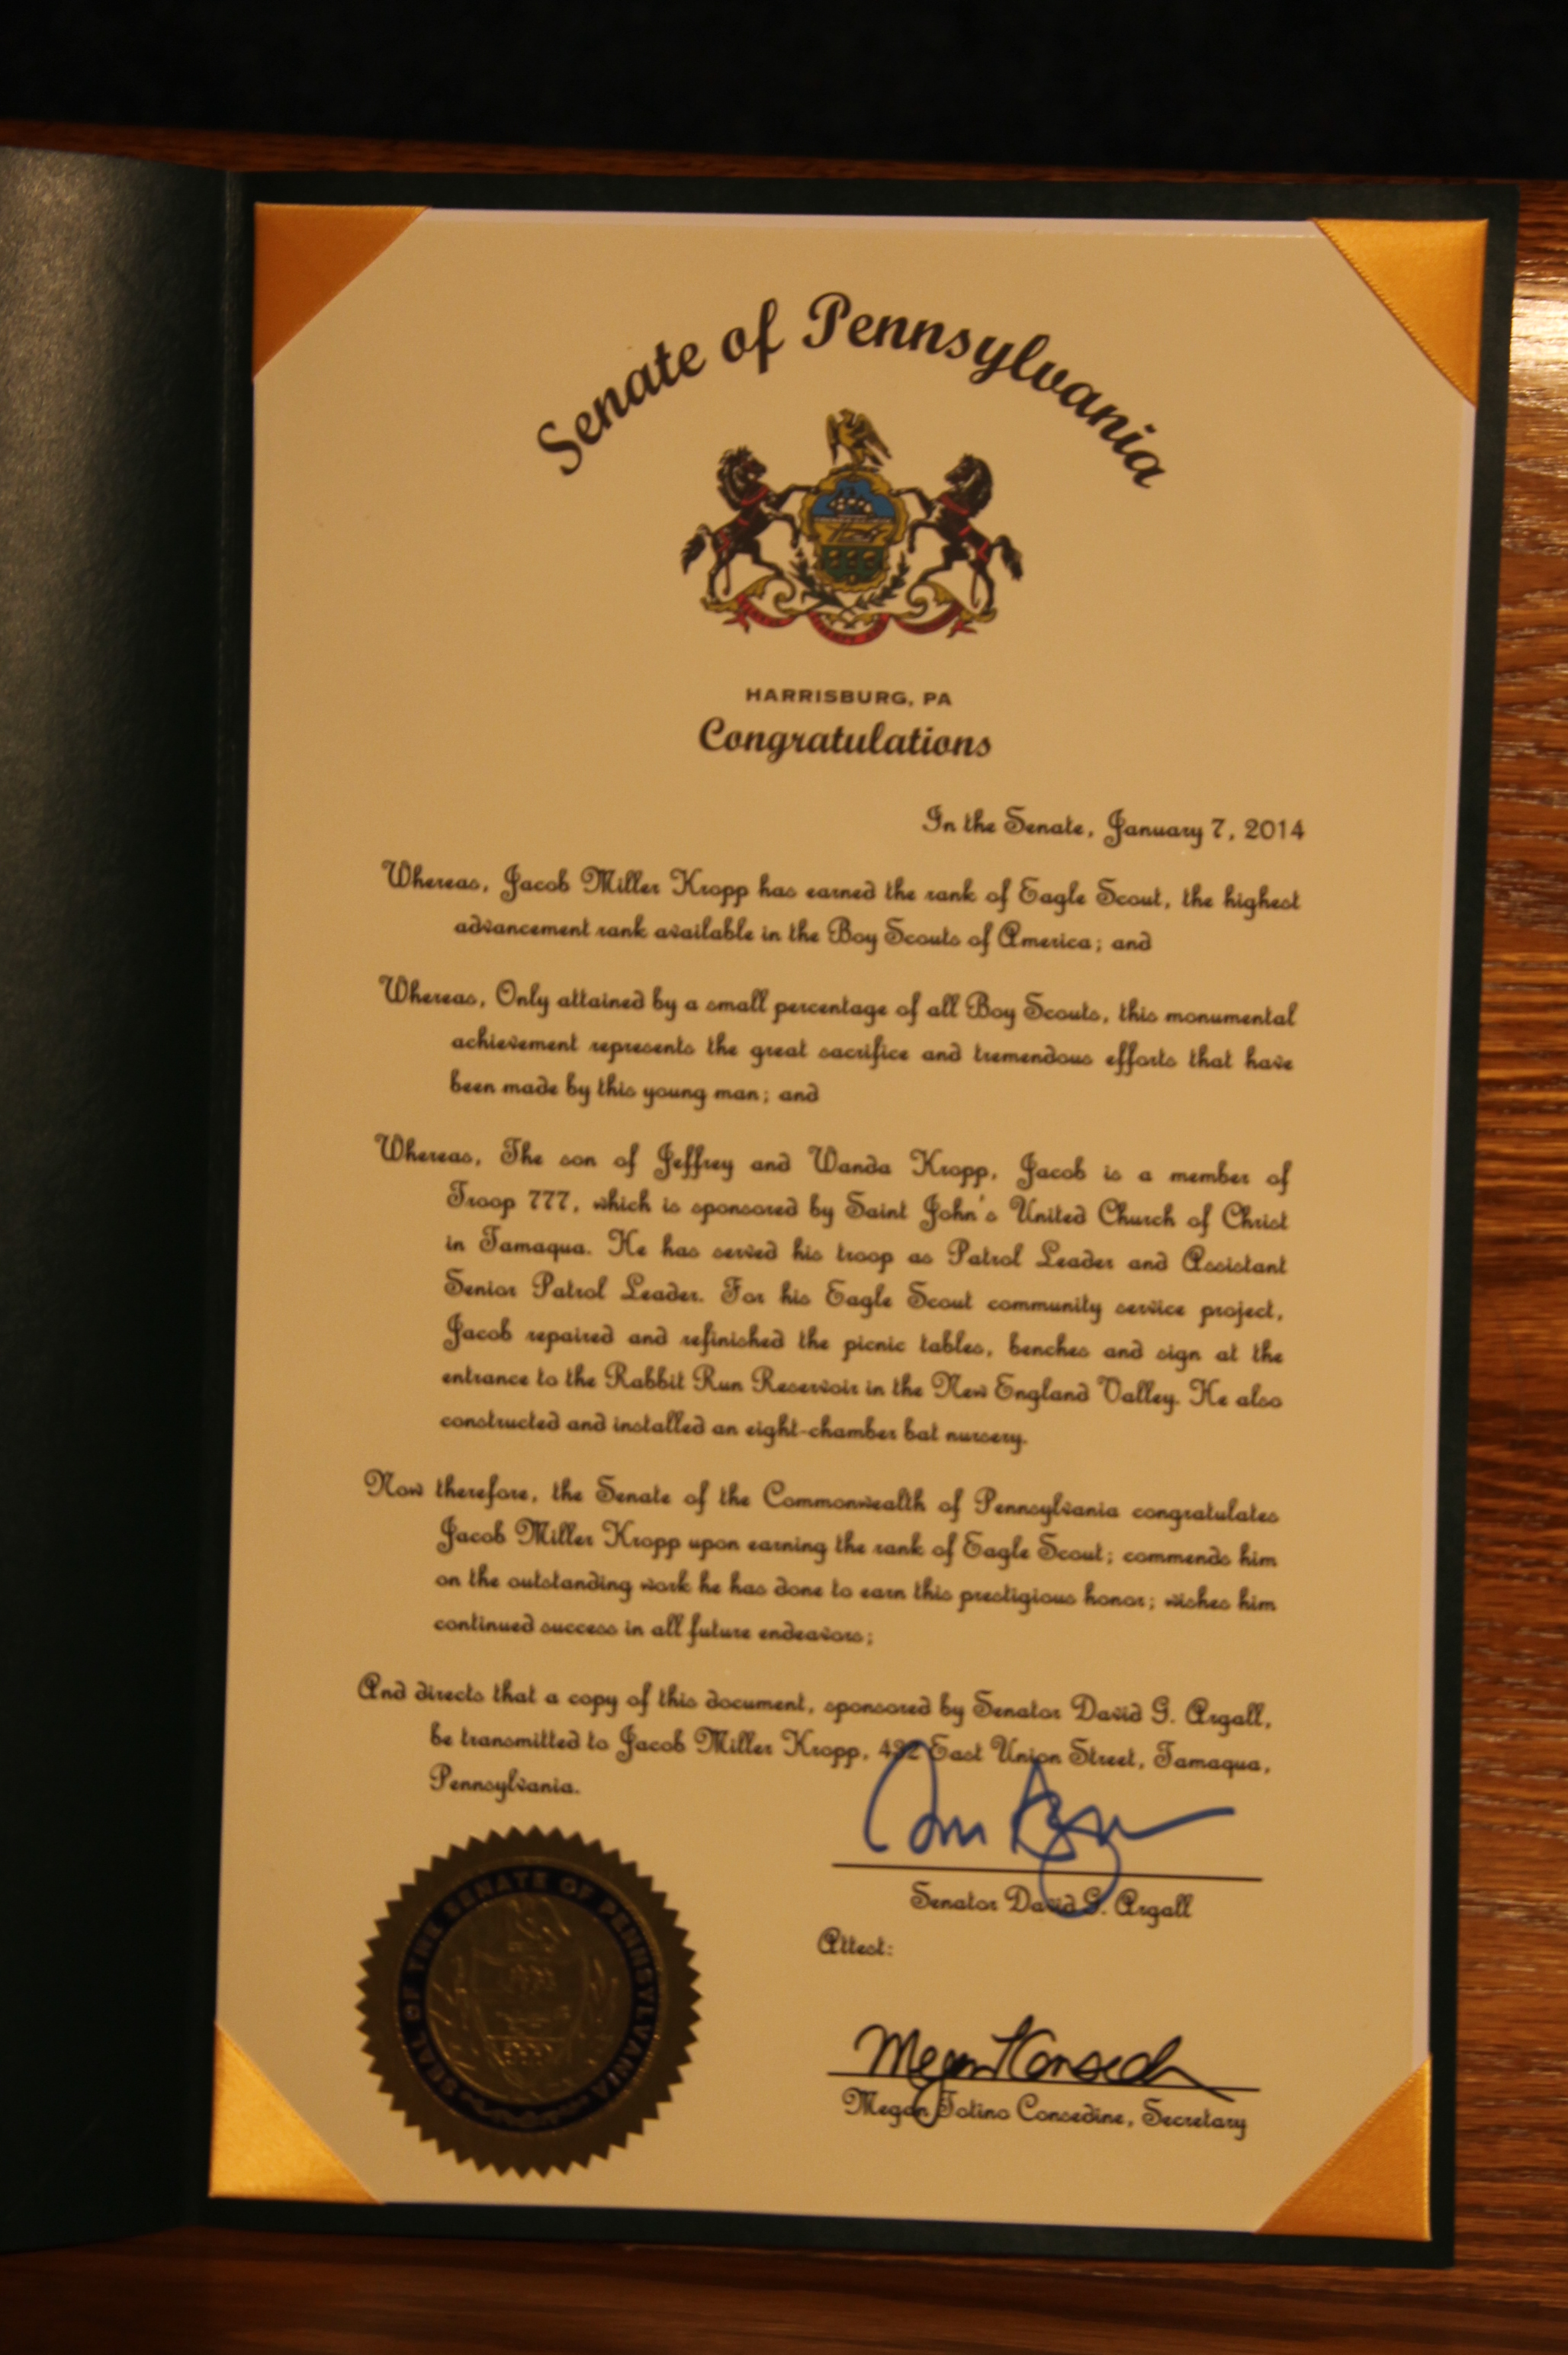 Senate of Pennsylvania
HARRISBURG, PA
Congratulations
In the Senate, January 7, 2014
Whereas, Jacob Miller Kropp has earned the rank of Eagle Scout, the highest
advancement rank available in the Boy Scouts of America; and
Whereas, Only attained by a small percentage of all Boy Scouts, this monumental
achievement represents the great sacrifice and tremendous efforts that have
been made by this young man; and
Whereas, The son of Jeffrey and Wanda Kropp, Jacob is a member of
Troop 777, which is sponsored by Saint John's United Church of Christ
in Tamaqua. He has served his troop as Patrol Leader and Assistant
Senior Patrol Leader. For his Eagle Scout community service project,
Jacob repaired and refinished the picnic tables, benches and sign at the
entrance to the Rabbit Run Reservoir in the New England Valley. He also
constructed and installed an eight-chamber bat nursery.
Now therefore, the Senate of the Commonwealth of Pennsylvania congratulates
Jacob Miller Kropp upon earning the rank of Eagle Scout; commends him
on the outstanding work he has done to earn this prestigious honor; wishes him
continued success in all future endeavors;
And directs that a copy of this document, sponsored by Senator David G. Argall,
be transmitted to Jacob Miller Kropp, East Union Street, Tamaqua,
Pennsylvania.
Senator David G. Argall
Attest:
Megan Totino Consedine, Secretary
SEAL OF THE SENATE OF PENNSYLVANIA